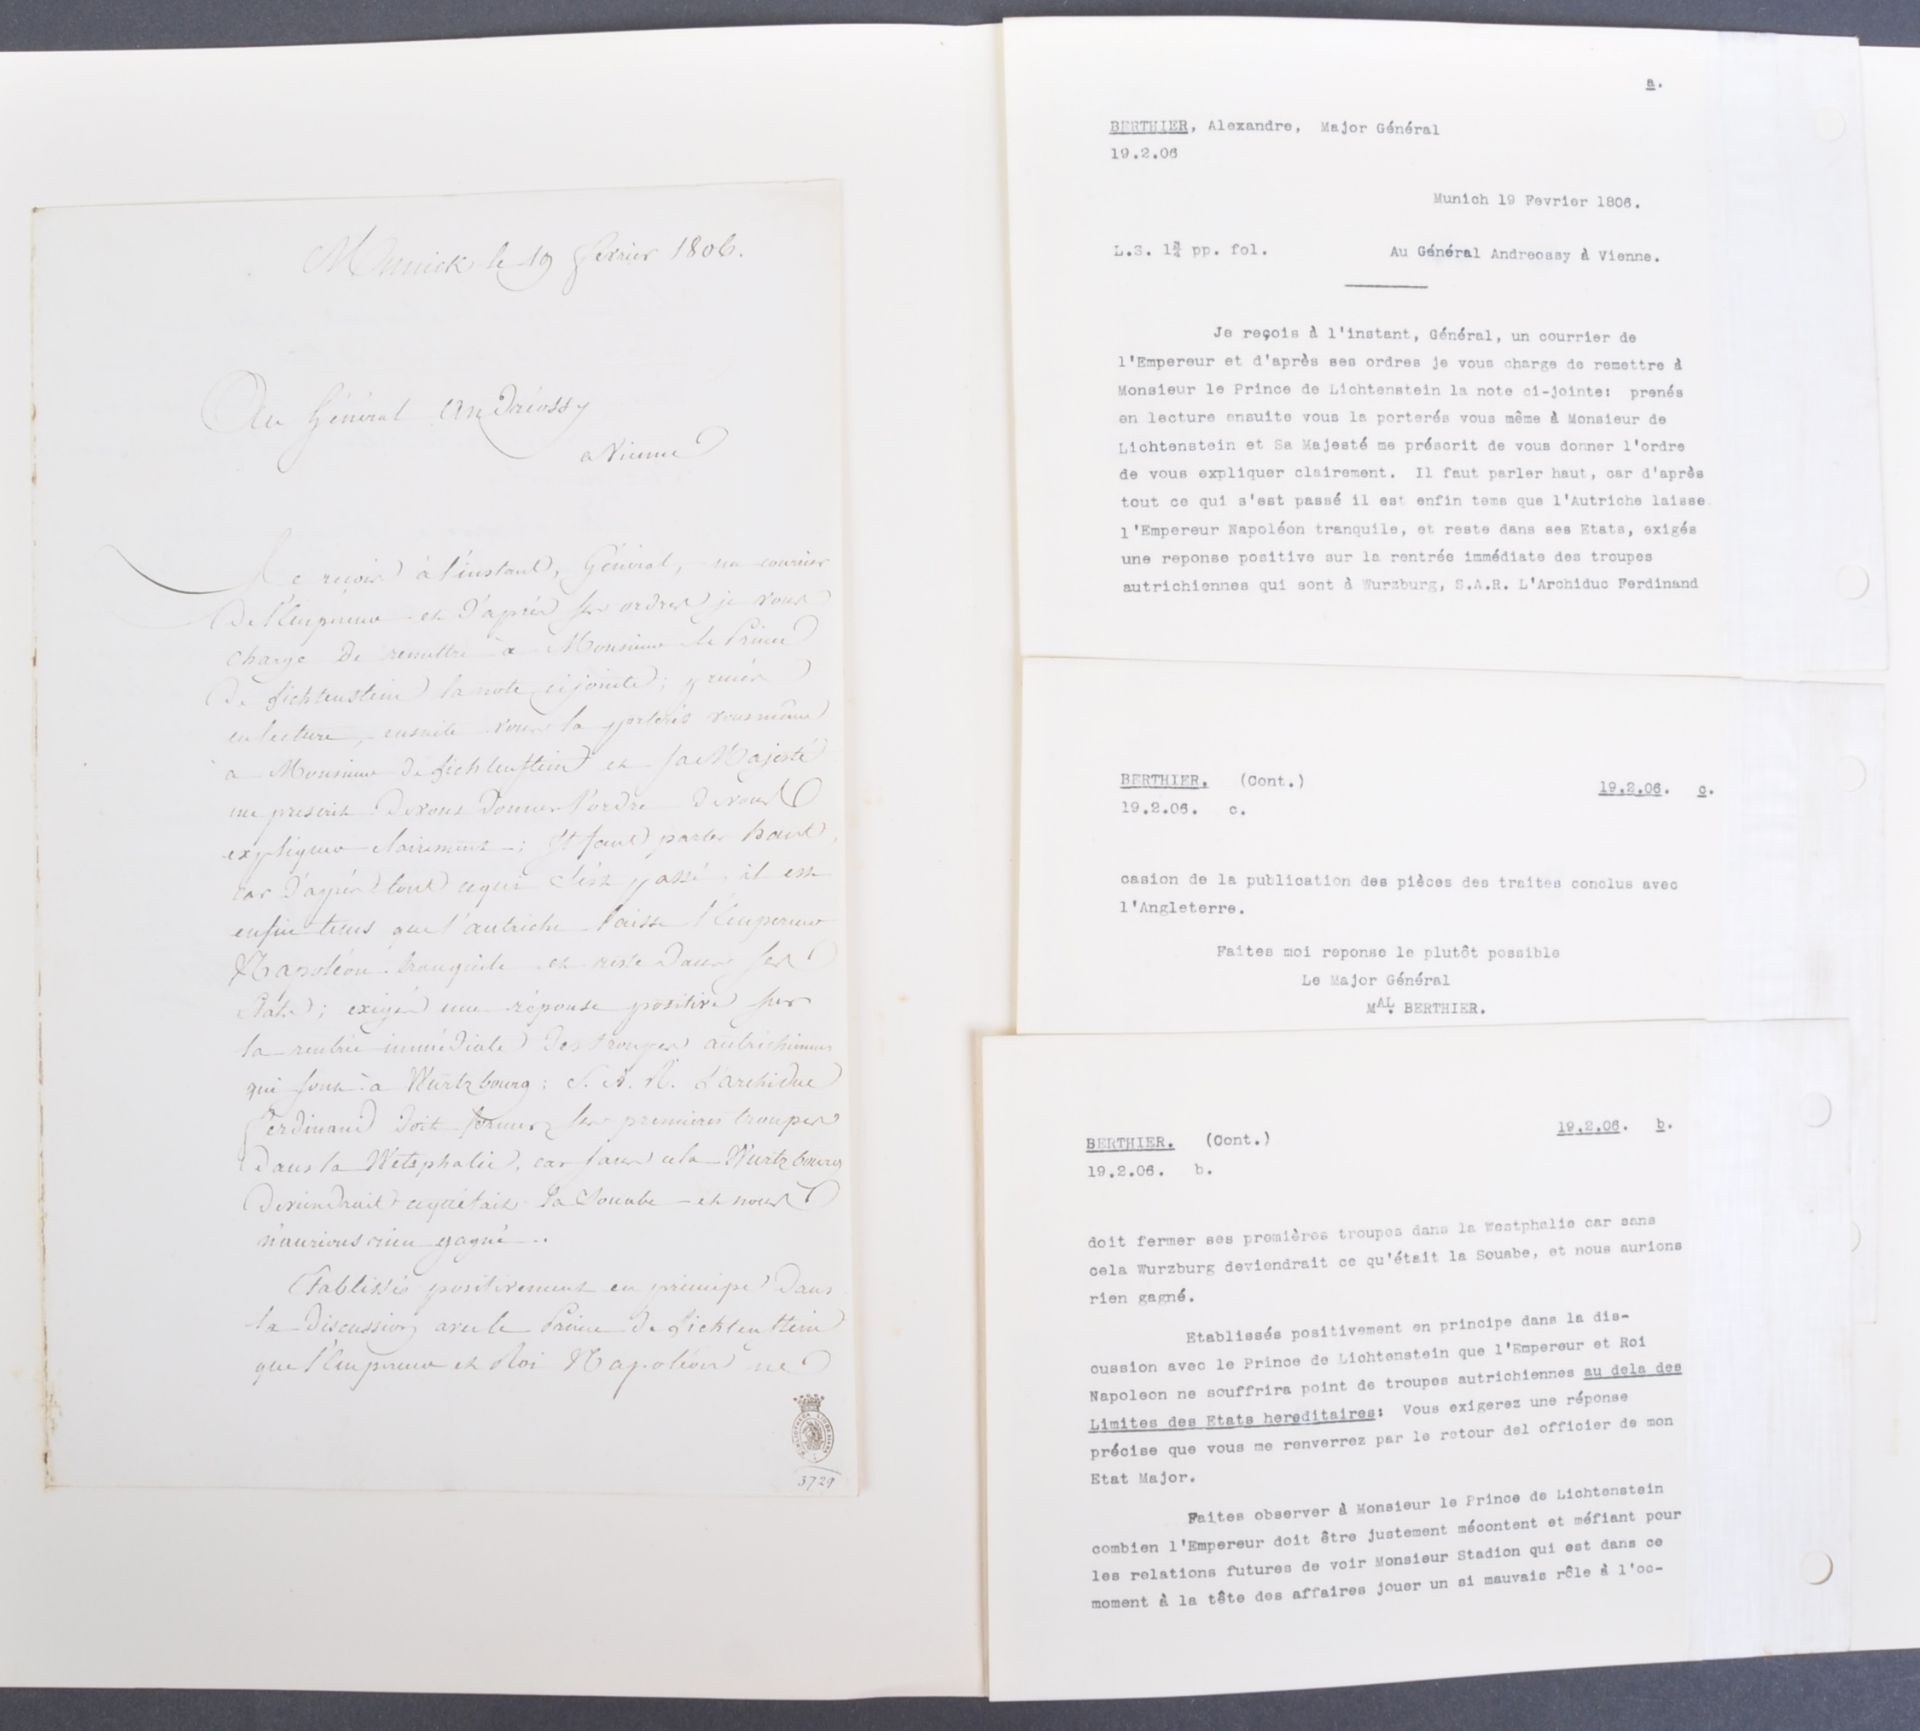 Munick le 19 fevrier 1806.
Au Général Andréossy
a Vienne
Je reçois à l'instant, Général, un courrier
de l'Empereur et d'après ses ordres je vous
charge de remettre à Monsieur le Prince
de Lichtenstein la note cijointe; prenés
en lecture, ensuite vous la porterés vous même
a Monsieur de Lichtenstein et sa Majesté
me prescrit de vous donner l'ordre de vous
expliquer clairement; Il faut parler haut,
car d'après tout cequi s'est passé, il est
enfin tems que l'autriche laisse l'Empereur
Napoléon tranquile et reste dans ses
Etats; exigés une réponse positive sur
la rentrée immédiate des troupes autrichiennes
qui sont à Wurtzbourg; S. A. R. L'archiduc
ferdinand doit former ses premieres troupes
dans la Wetsphalie, car sans cela Wurtzbourg
deviendrait cequ'était la Souabe et nous
n'aurions rien gagné..
Etablissés positivement en principe dans
la discussion avec le Prince de Lichtenstein
que l'Empereur et Roi Napoléon ne
3729
a.
BERTHIER, Alexandre, Major Général
19.2.06
Munich 19 Fevrier 1806.
L.S. 1¾ pp. fol. Au Général Andreossy à Vienne.
Je reçois à l'instant, Général, un courrier de
l'Empereur et d'après ses ordres je vous charge de remettre à
Monsieur le Prince de Lichtenstein la note ci-jointe: prenés
en lecture ensuite vous la porterés vous même à Monsieur de
Lichtenstein et Sa Majesté me préscrit de vous donner l'ordre
de vous expliquer clairement. Il faut parler haut, car d'après
tout ce qui s'est passé il est enfin tems que l'Autriche laisse
l'Empereur Napoléon tranquile, et reste dans ses Etats, exigés
une reponse positive sur la rentrée immédiate des troupes
autrichiennes qui sont à Wurzburg, S.A.R. L'Archiduc Ferdinand
BERTHIER. (Cont.) 19.2.06. c.
19.2.06. c.
casion de la publication des pièces des traites conclus avec
l'Angleterre.
Faites moi reponse le plutôt possible
Le Major Général
MAL. BERTHIER.
BERTHIER. (Cont.) 19.2.06. b.
19.2.06. b.
doit fermer ses premières troupes dans la Westphalie car sans
cela Wurzburg deviendrait ce qu'était la Souabe, et nous aurions
rien gagné.
Etablissés positivement en principe dans la dis-
cussion avec le Prince de Lichtenstein que l'Empereur et Roi
Napoleon ne souffrira point de troupes autrichiennes au dela des
Limites des Etats hereditaires: Vous exigerez une réponse
précise que vous me renverrez par le retour del officier de mon
Etat Major.
Faites observer à Monsieur le Prince de Lichtenstein
combien l'Empereur doit être justement mécontent et méfiant pour
les relations futures de voir Monsieur Stadion qui est dans ce
moment à la tête des affaires jouer un si mauvais rôle à l'oc-